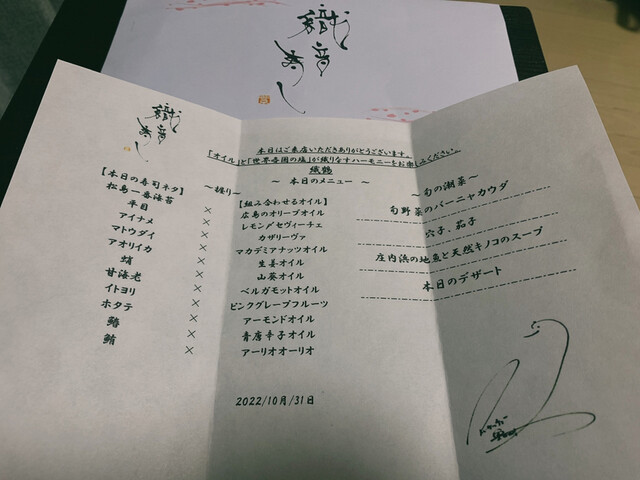 織音寿し
織音寿し
本日はご来店いただきありがとうございます。
「オイル」と「世界各国の塩」が織りなすハーモニーをお楽しみください。
〜握り〜
〜 本日のメニュー 〜
【本日の寿司ネタ】
【組み合わせるオイル】
松島一番海苔 × 広島のオリーブオイル
平目 × レモン〆セヴィーチェ
アイナメ × カザリーヴァ
マトウダイ × マカデミアナッツオイル
アオリイカ × 生姜オイル
蛸 × 山葵オイル
甘海老 × ベルガモットオイル
イトヨリ × ピンクグレープフルーツ
ホタテ × アーモンドオイル
× 青唐辛子オイル
鮪 × アーリオオーリオ
2022/10月/31日
〜旬の潮菜〜
旬野菜のバーニャカウダ
穴子、茄子
庄内浜の地魚と天然キノコのスープ
本日のデザート